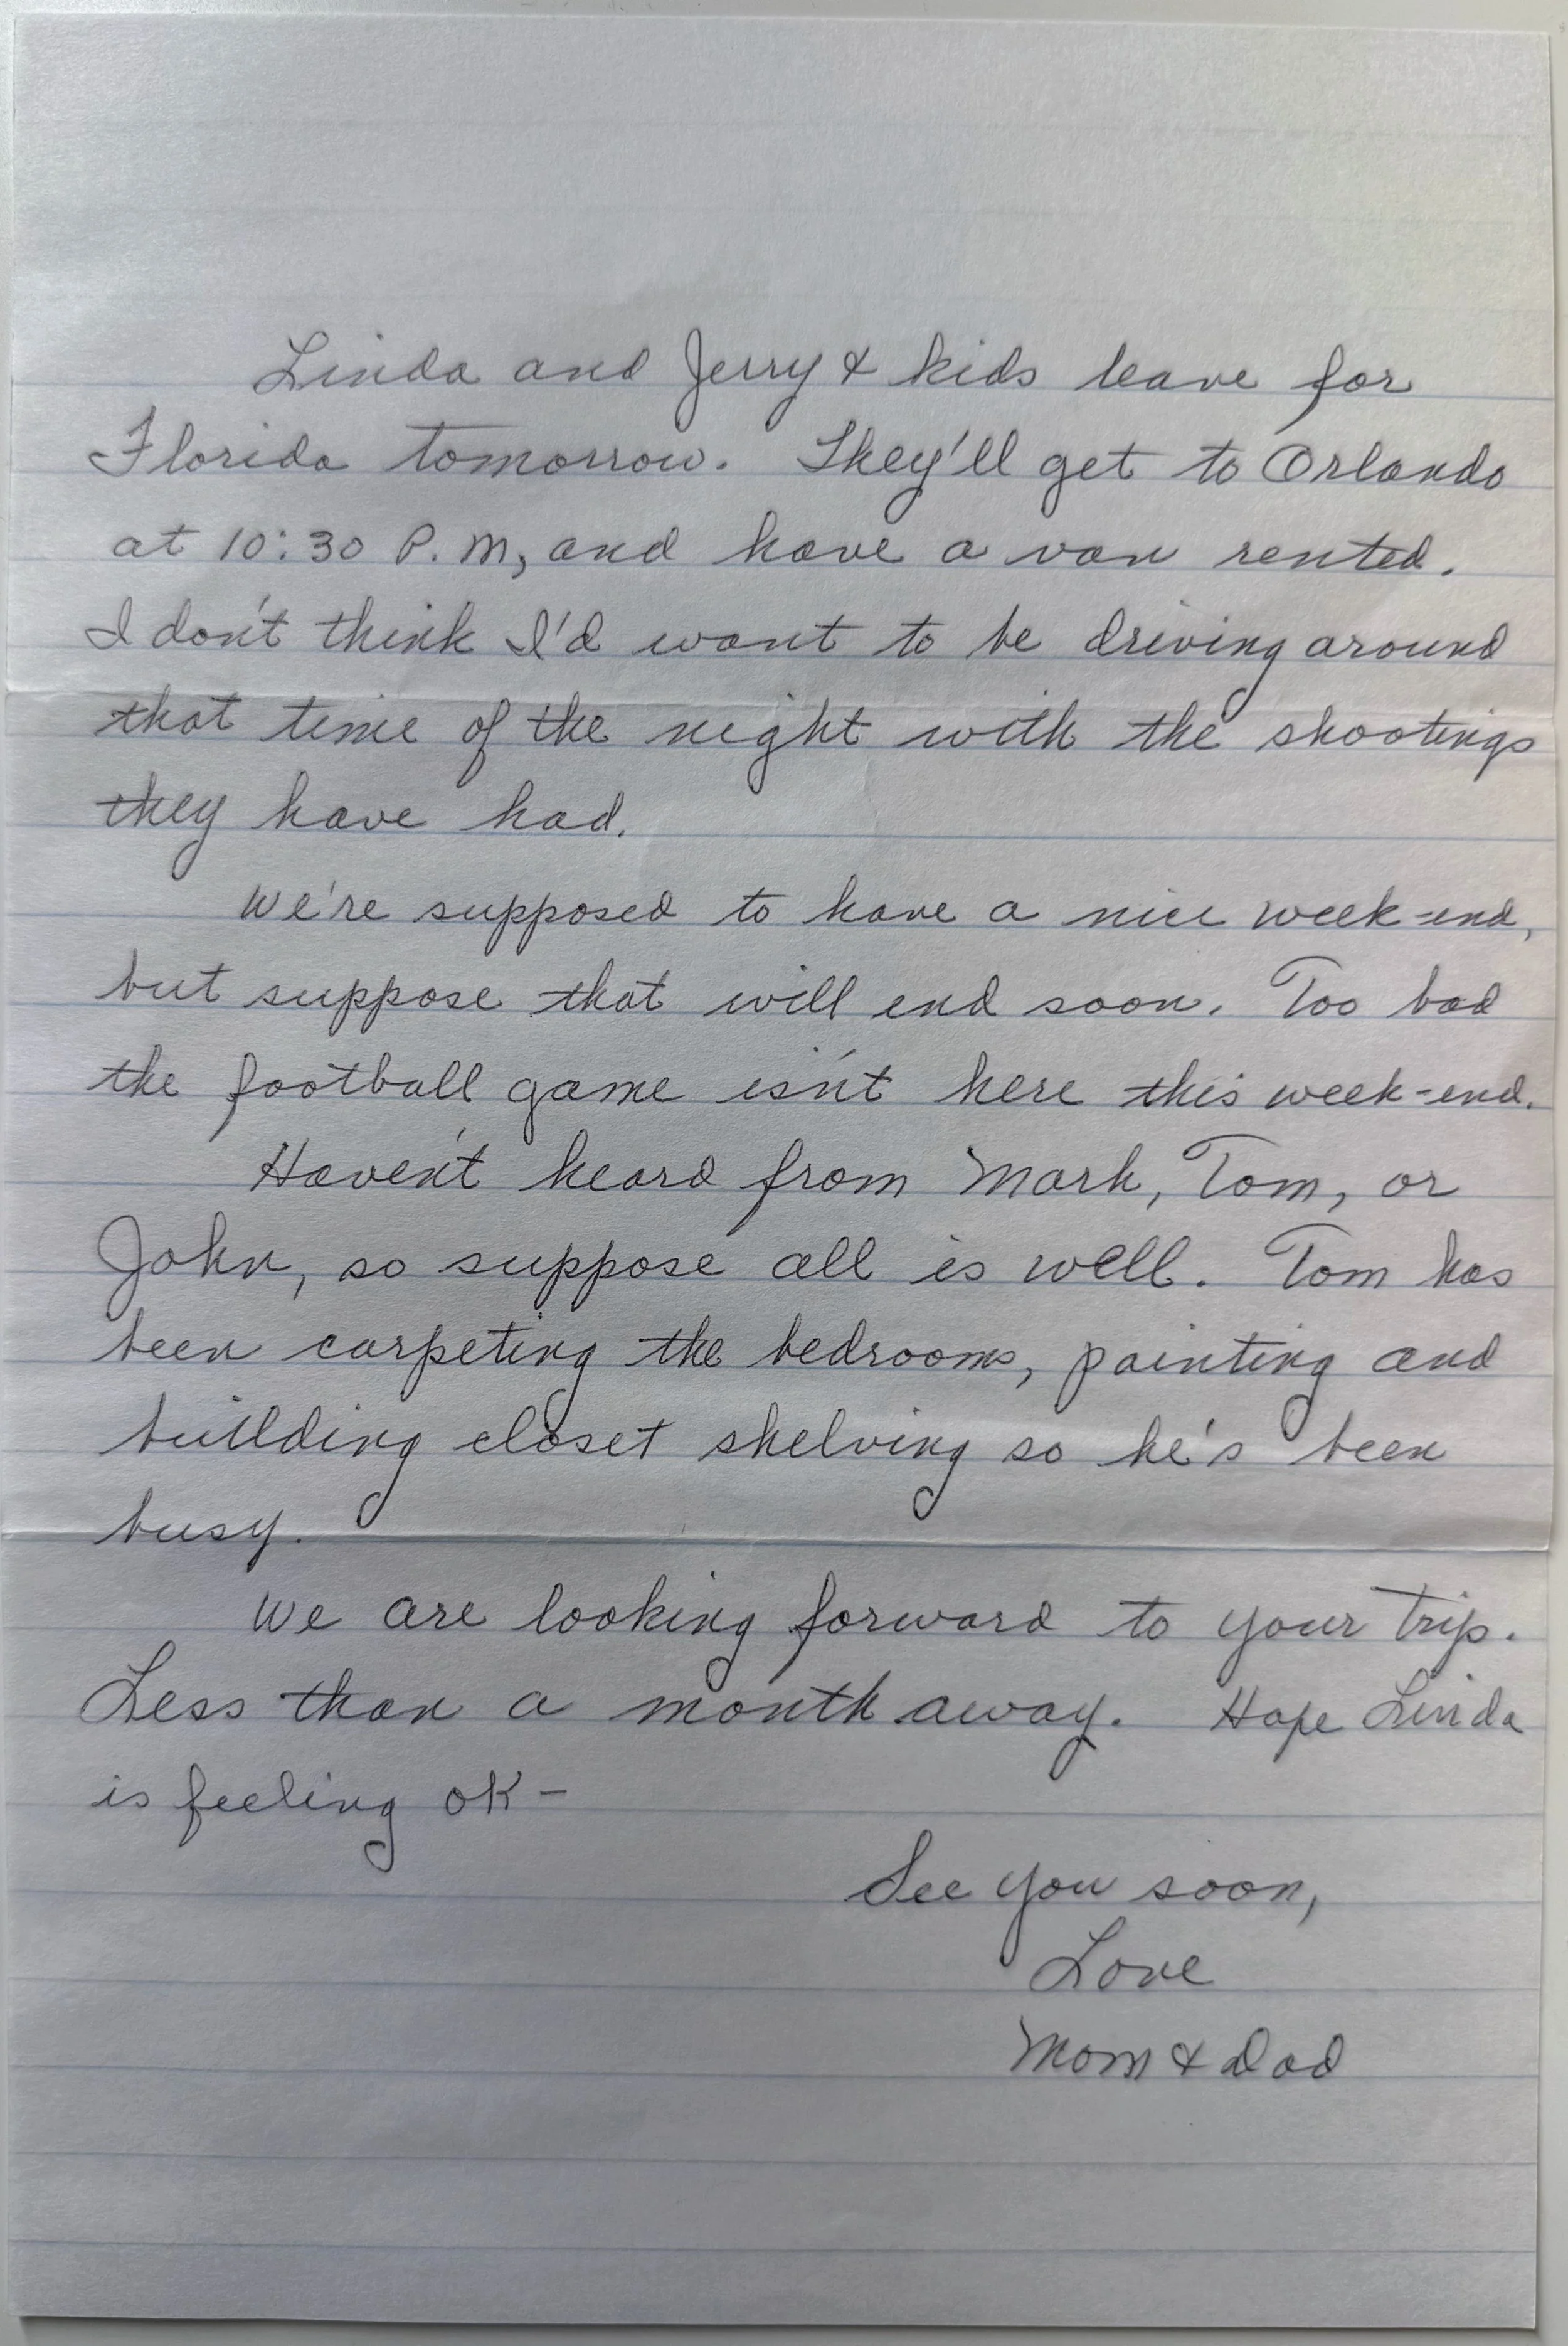 Linda and Jerry & kids leave for
Florida tomorrow. They'll get to Orlando
at 10:30 P.M, and have a van rented.
I don't think I'd want to be driving around
that time of the night with the shootings
they have had.
We're supposed to have a nice week-end,
but suppose that will end soon. Too bad
the football game isn't here this week-end.
Haven't heard from Mark, Tom, or
John, so suppose all is well. Tom has
been carpeting the bedrooms, painting and
building closet shelving so he's been
busy.
We are looking forward to your trip.
Less than a month away. Hope Linda
is feeling OK-
See you soon,
Love
Mom & Dad